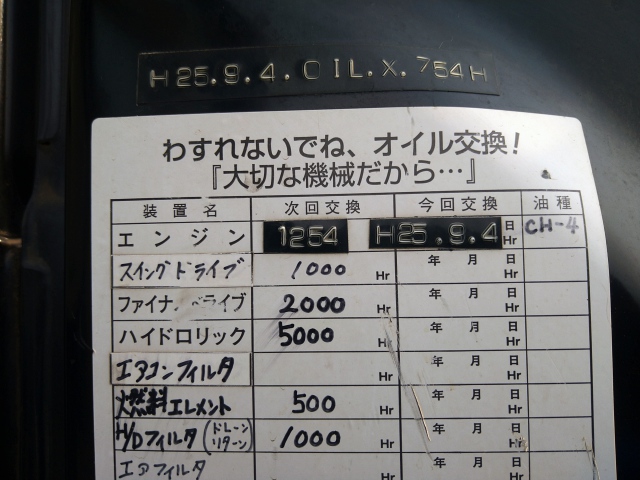 H25.9.4.OIL.X.754H
わすれないでね、オイル交換!
『大切な機械だから…』
装置名 次回交換 今回交換 油種
エンジン 1254 H25.9.4 日 Hr CH-4
スイングドライブ 1000 Hr 年 月 日 Hr
ファイナ ドライブ 2000 Hr 年 月 日 Hr
ハイドロリック 5000 Hr 年 月 日 Hr
エアコンフィルタ Hr 年 月 日 Hr
燃料エレメント 500 Hr 年 月 日 Hr
H/Dフィルタ(ドレーン リターン) 1000 Hr 年 月 日 Hr
エアフィルタ 年 月 日